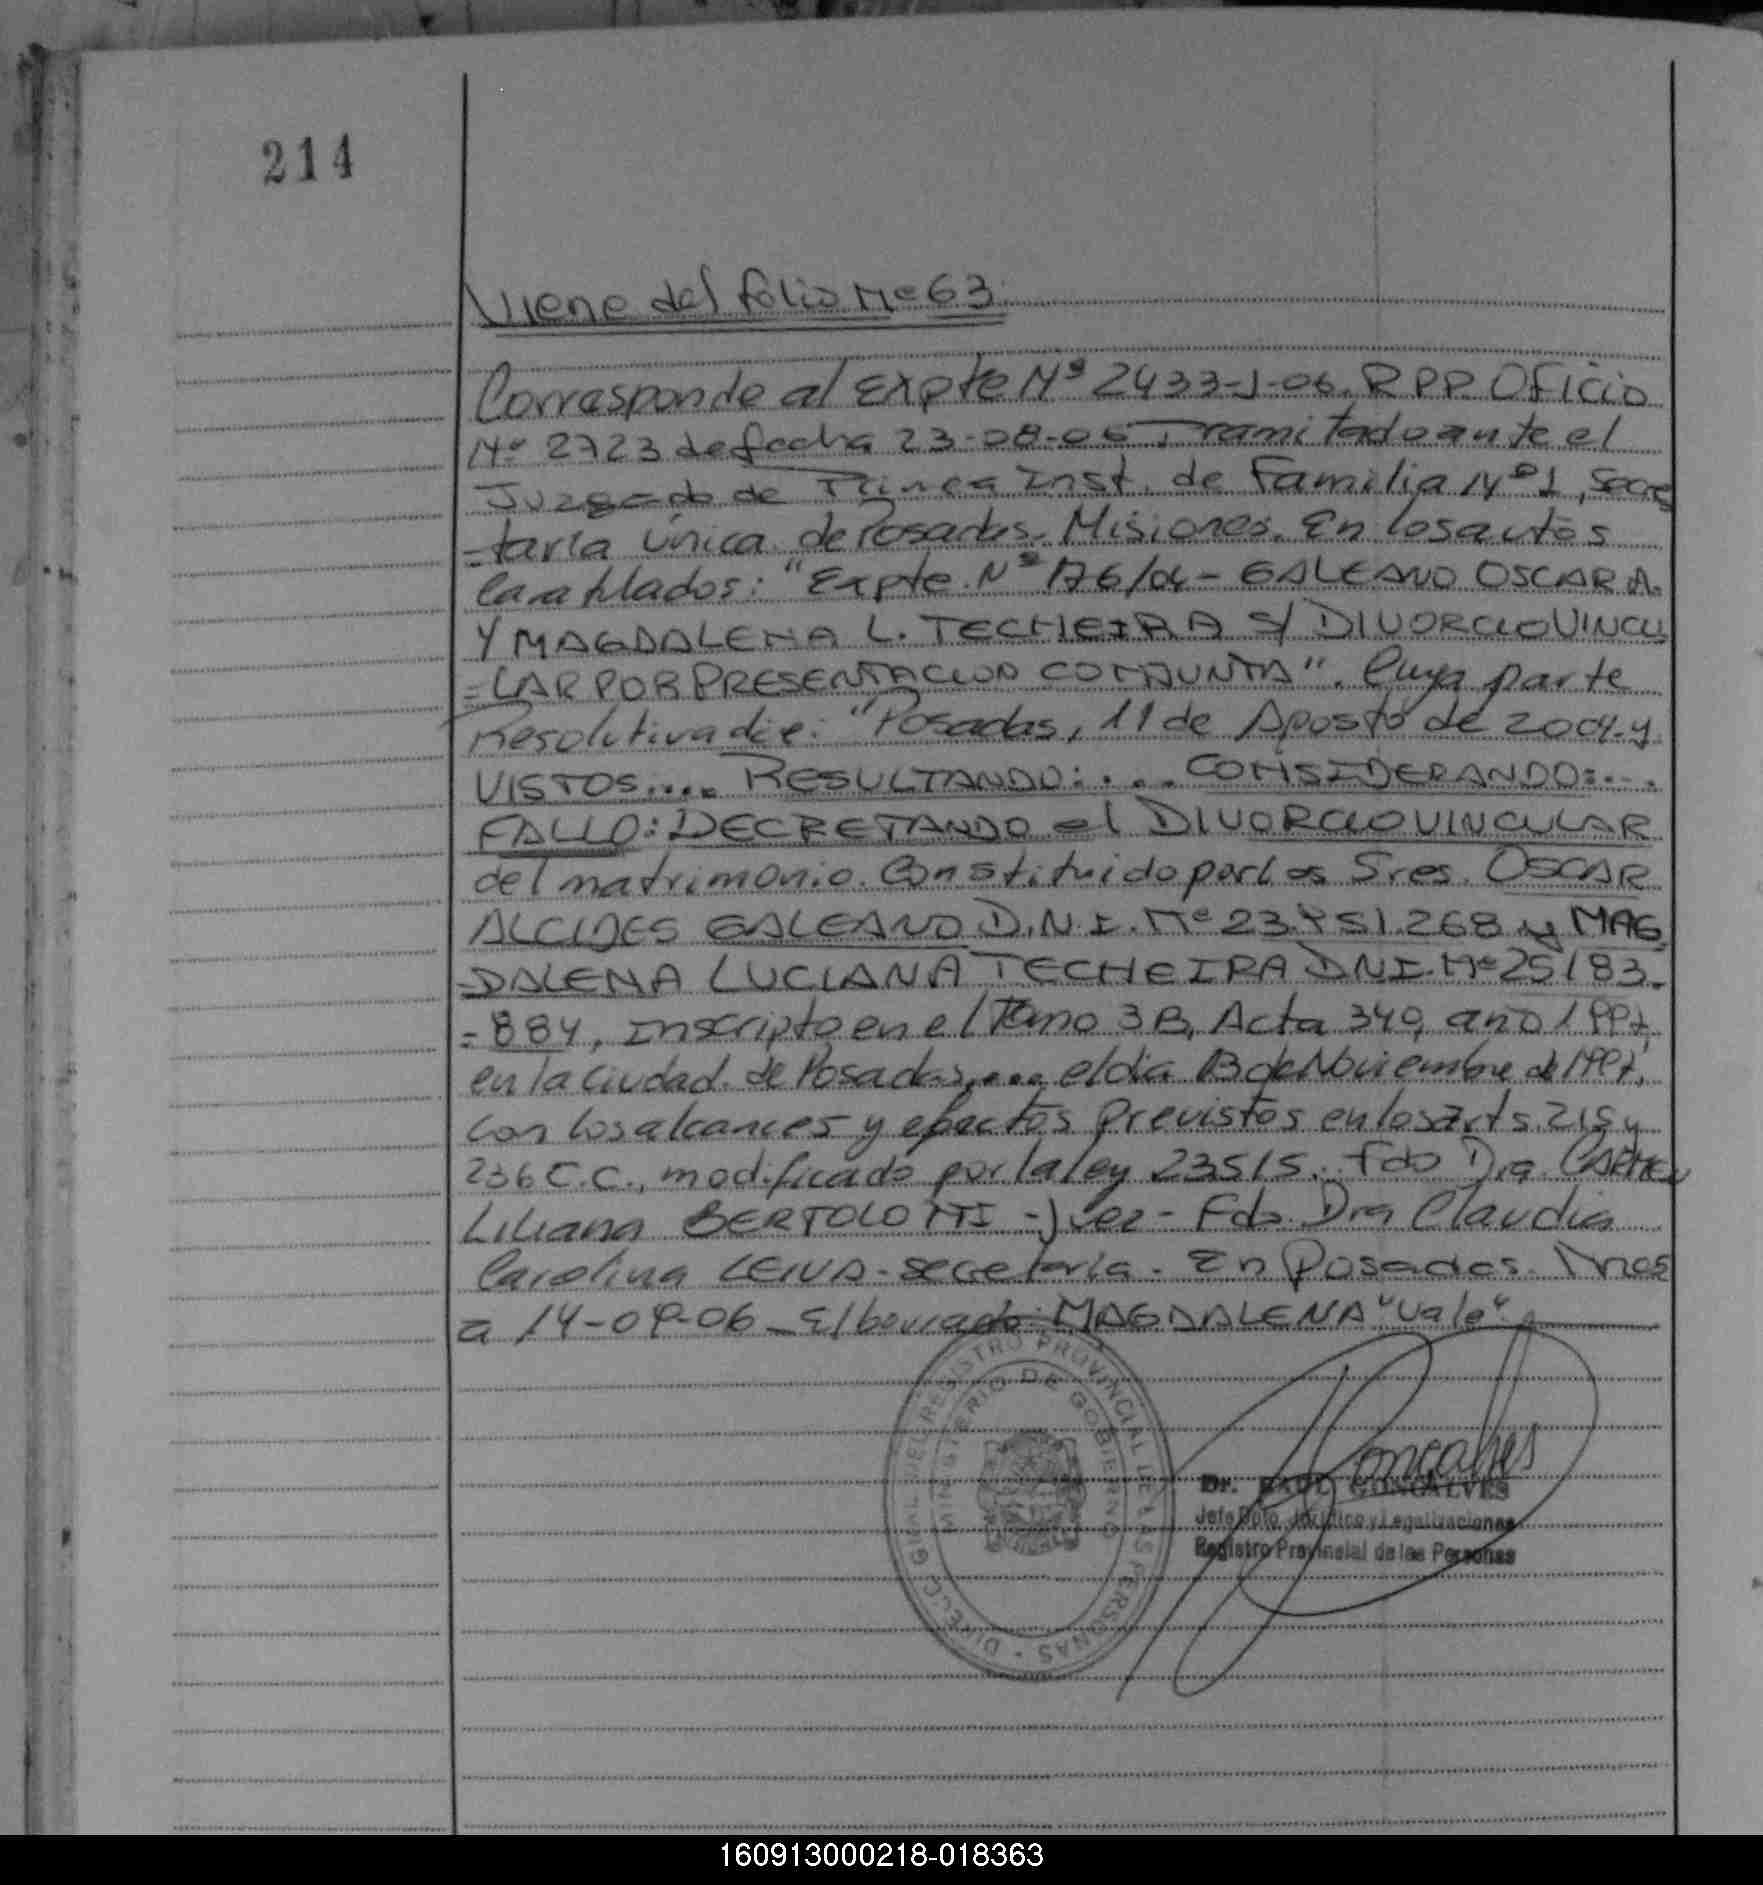 214
Viene del folio Nº 63.
Corresponde al Expte Nº 2433-J-06. R.P.P. Oficio
Nº 2723 de fecha 23-08-06 Tramitado ante el
Juzgado de Primera Inst. de Familia Nº 1, Secre
=taría única de Posadas. Misiones. En los autos
Caratulados: "Expte. Nº 176/04 - GALEANO OSCAR A.
Y MAGDALENA L. TECHEIRA S/ DIVORCIO VINCU
=LAR POR PRESENTACION CONJUNTA". Cuya parte
Resolutiva dice: "Posadas, 11 de Agosto de 2004. y
VISTOS.... RESULTANDO:.... CONSIDERANDO:....
FALLO: DECRETANDO el DIVORCIO VINCULAR
del matrimonio. Constituido por los Sres. OSCAR
ALCIDES GALEANO D.N.I. Nº 23.451.268 y MAG
-DALENA LUCIANA TECHEIRA DNI. Nº 25183.
=884, Inscripto en el Tomo 3B, Acta 349, año 1997,
en la ciudad de Posadas,.... el día 13 de Noviembre de 1997,
con los alcances y efectos previstos en los arts. 215 y
236 C.C., modificado por la ley 23515. Fdo Dra. CARMEN
Liliana BERTOLOTTI - Juez - Fdo. Dra Claudia
Carolina LEIVA - secretaria. En Posadas. Mnes
a 14-09-06 - El borrado: MAGDALENA "Vale".
DIRECC GRAL DEL REGISTRO PROVINCIAL DE LAS PERSONAS -
MINISTERIO DE GOBIERNO
Goncalves
Dr. RAUL GONCALVES
Jefe Dpto. Jurídico y Legalizaciones
Registro Provincial de las Personas
160913000218-018363